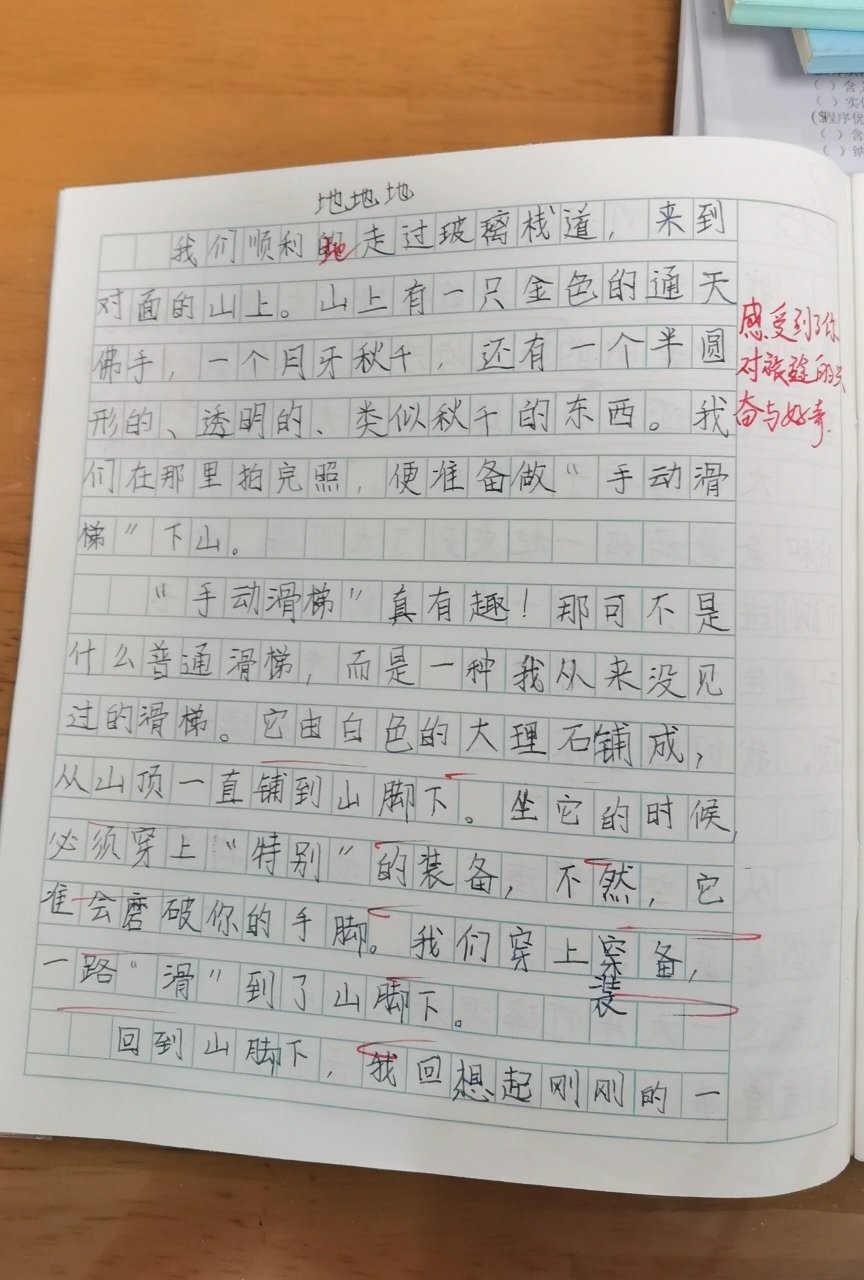 ( ) 含
( ) 实
程序优
( ) 含
( ) 纳
地地地
我们顺利地走过玻璃栈道，来到
对面的山上。山上有一只金色的通天
佛手，一个月牙秋千，还有一个半圆
形的、透明的、类似秋千的东西。我
们在那里拍完照，便准备做“手动滑
梯”下山。
“手动滑梯”真有趣！那可不是
什么普通滑梯，而是一种我从来没见
过的滑梯。它由白色的大理石铺成，
从山顶一直铺到山脚下。坐它的时候，
必须穿上“特别”的装备，不然，它
准会磨破你的手脚。我们穿上穿备，
装
一路“滑”到了山脚下。
回到山脚下，我回想起刚刚的一
感受到了你
对旅途的兴
奋与好奇.